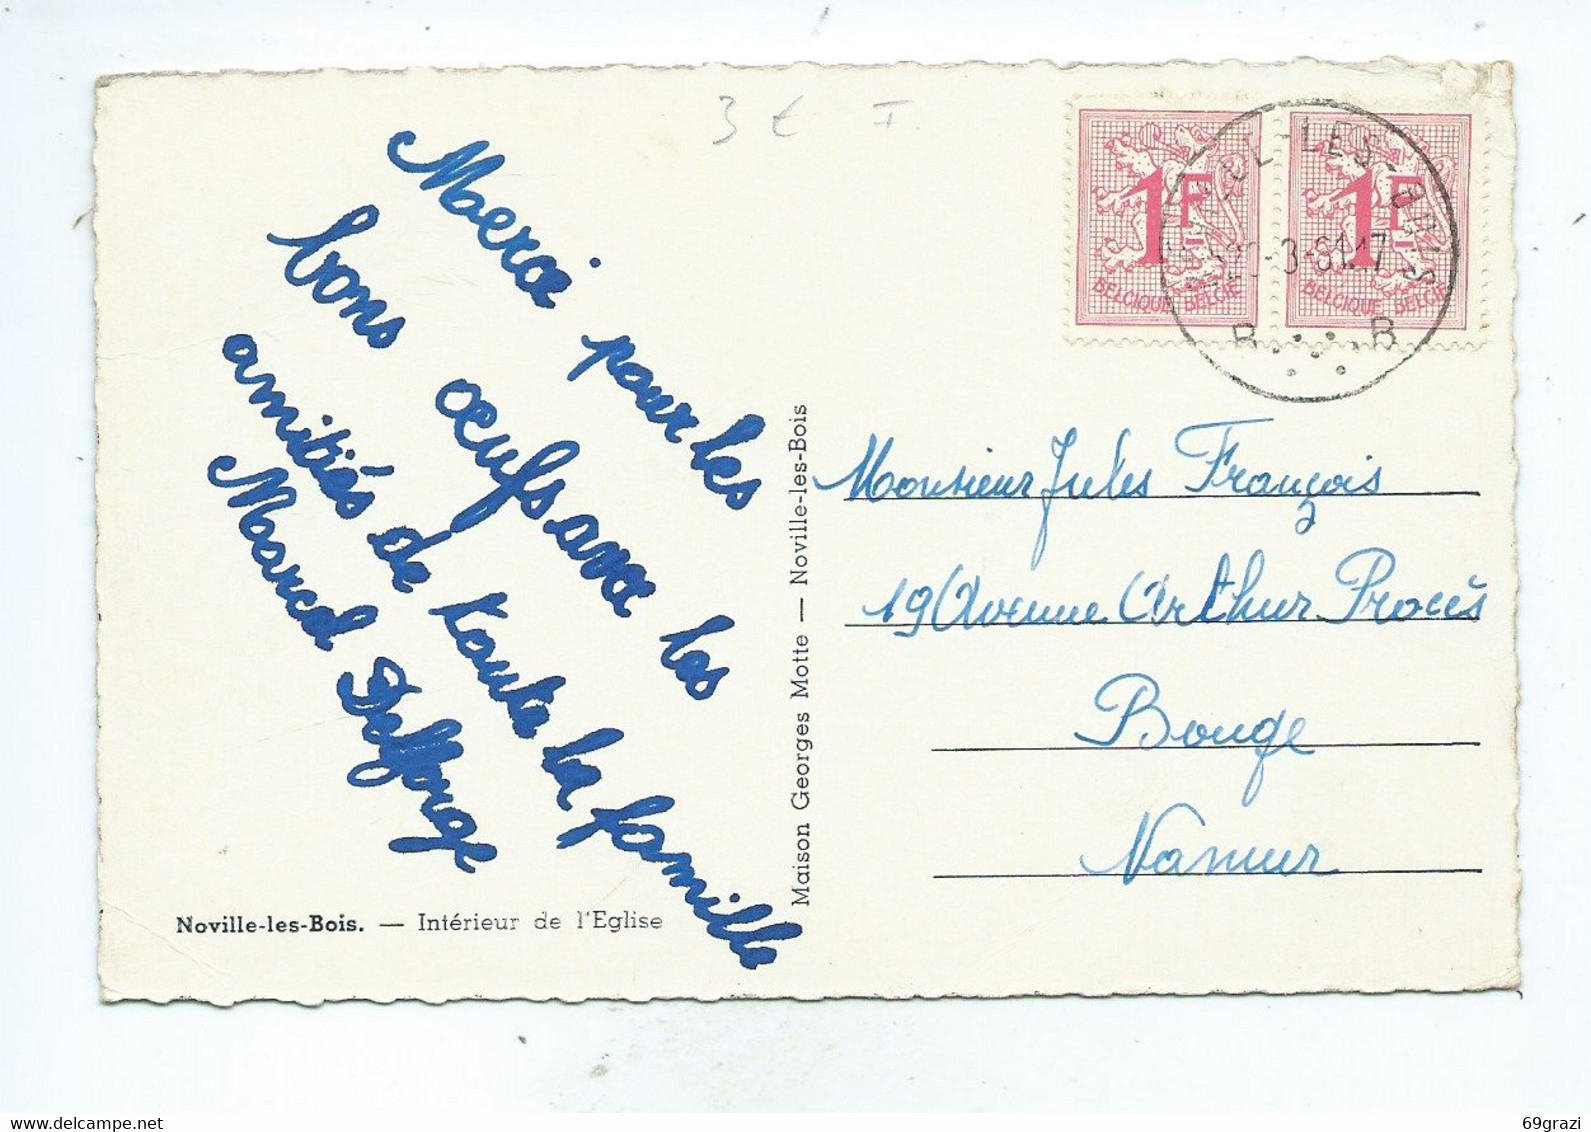 3 € I.
Merci pour les
bons oeufs avec les
amitiés de toute la famille
Marcel Defforge
Noville-les-Bois. — Intérieur de l'Eglise
Maison Georges Motte — Noville-les-Bois
1F
BELGIQUE BELGIE
1F
BELGIQUE BELGIE
-LES-BOIS
-3-61.17
B B
Monsieur Jules François
19 Avenue Arthur Procès
Bouge
Namur
69grazi